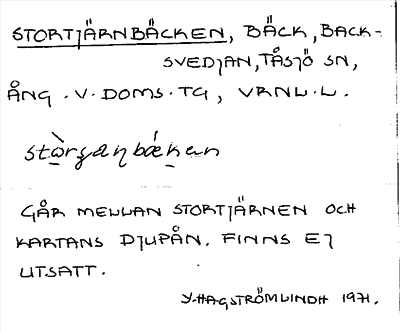 STORTJÄRNBÄCKEN, BÄCK, BACK-
SVEDJAN, TÅSJÖ SN,
ÅNG. V. DOMS. TG, VRNL. L.
GÅR MELLAN STORTJÄRNEN OCH
KARTANS DJUPÅN. FINNS EJ
UTSATT.
Y. HAGSTRÖM LINDH 1971.